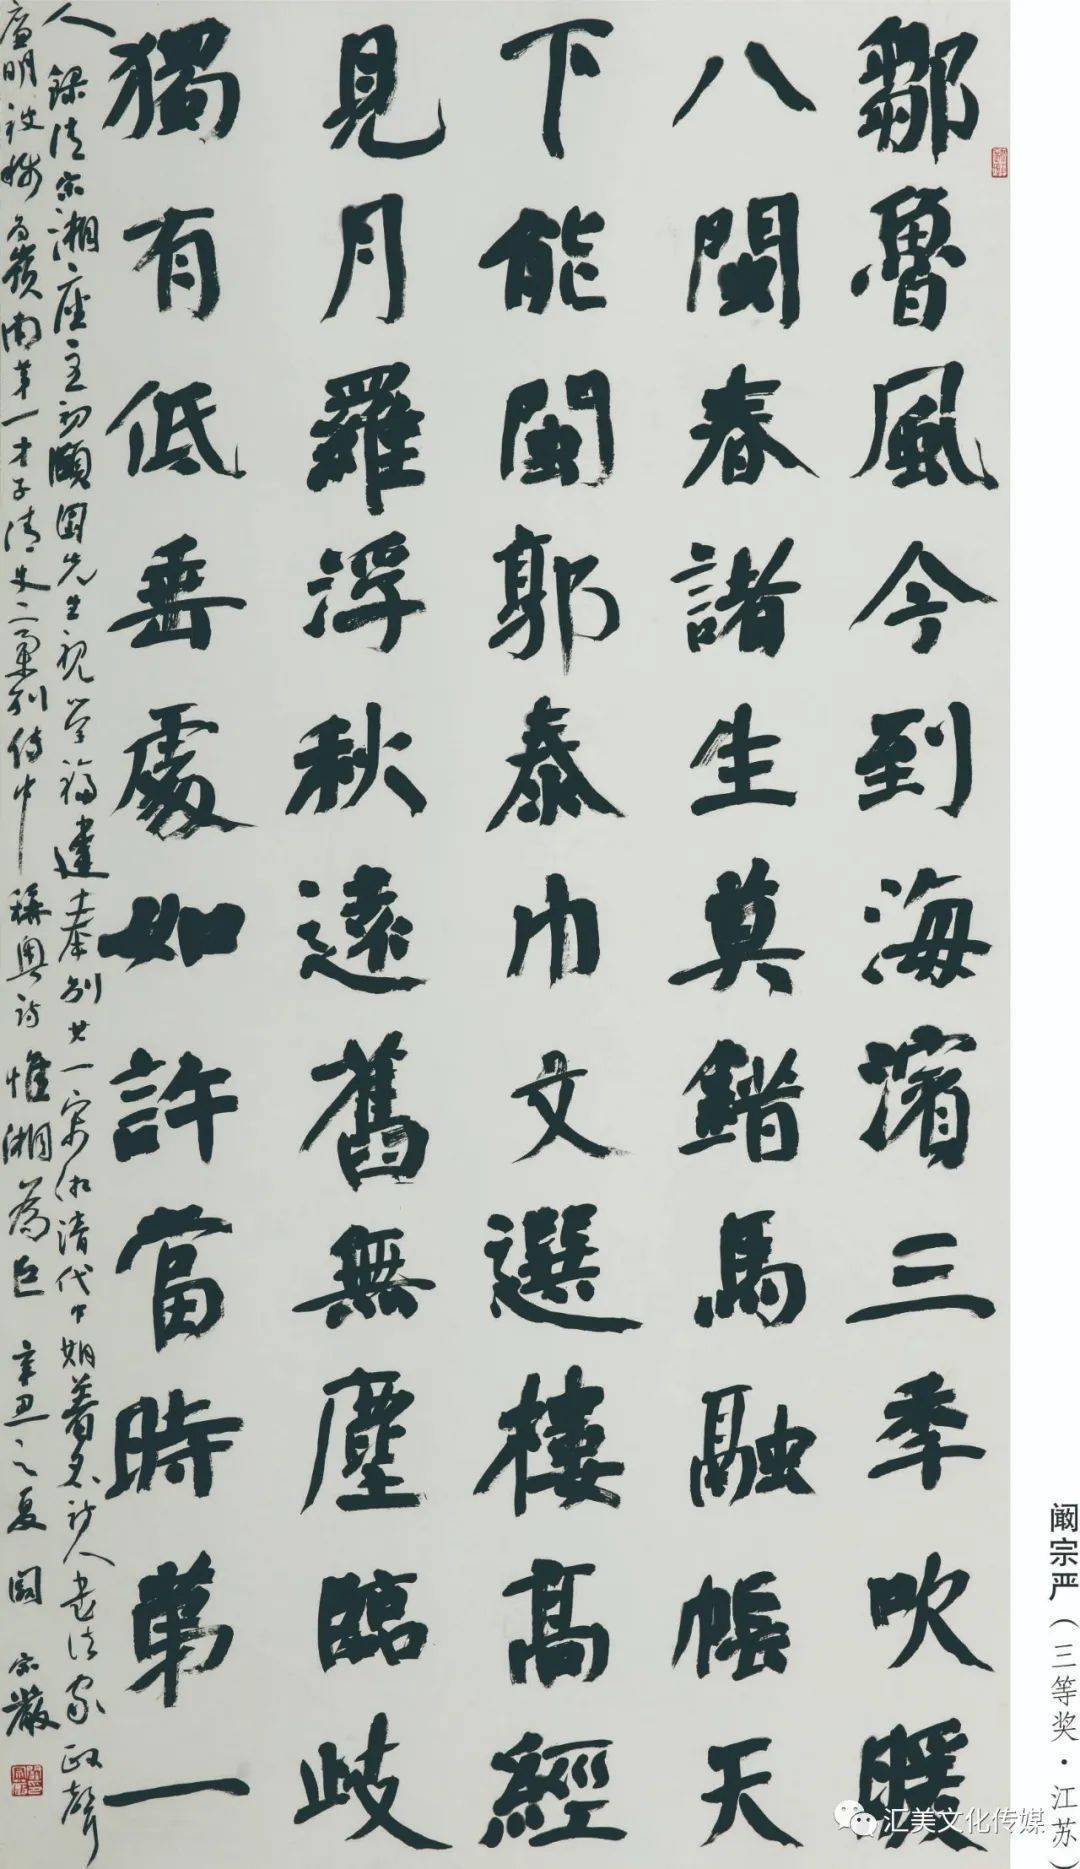 鄒魯風今到海濱三季吹暖
八閩春諸生莫錯馬融帳天
下能閩郭泰巾文選樓高經
見月羅浮秋遠舊無塵臨歧
獨有低垂處如許當時第一
人 錄清宋湘座主初頤園先生視學福建奉別其一宋湘清代中期著名詩人書法家政聲
廉明被稱為嶺南第一才子清史之稿列傳中稱粵詩惟湘為巨 辛丑之夏 闞宗嚴
阚宗严（三等奖·江苏）
汇美文化传媒